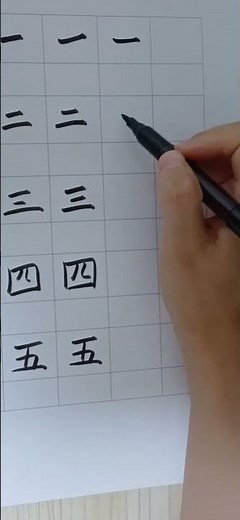 一 一 一
二 二
三 三
四 四
五 五